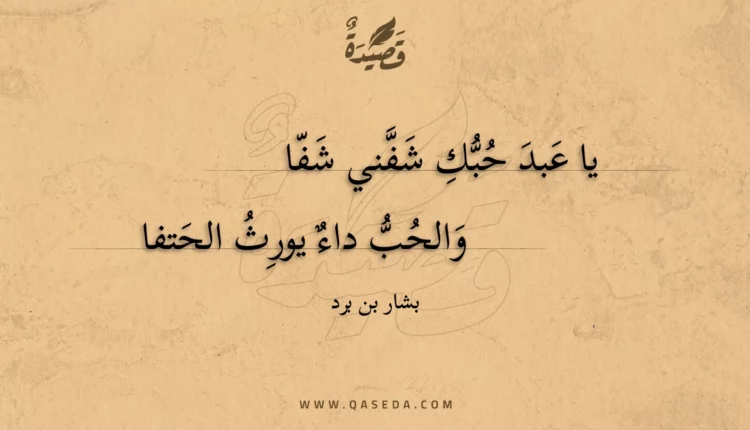 قَصِيْدَةٌ
يا عَبدَ حُبُّكِ شَفَّني شَفّا
وَالحُبُّ داءٌ يورِثُ الحَتفا
بشار بن برد
WWW.QASEDA.COM